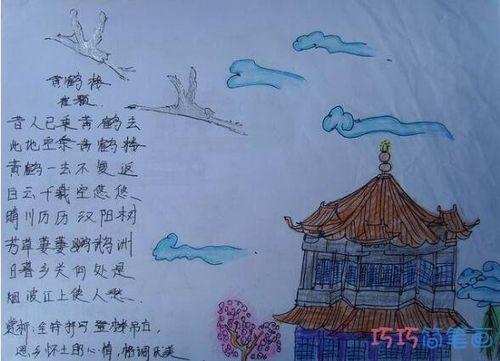 黄鹤楼
崔颢
昔人已乘黄鹤去
此地空余黄鹤楼
黄鹤一去不复返
白云千载空悠悠
晴川历历汉阳树
芳草萋萋鹦鹉洲
日暮乡关何处是
烟波江上使人愁
赏析:全诗抒写登楼吊古,
思乡怀土的心情,格调优美
巧巧简笔画